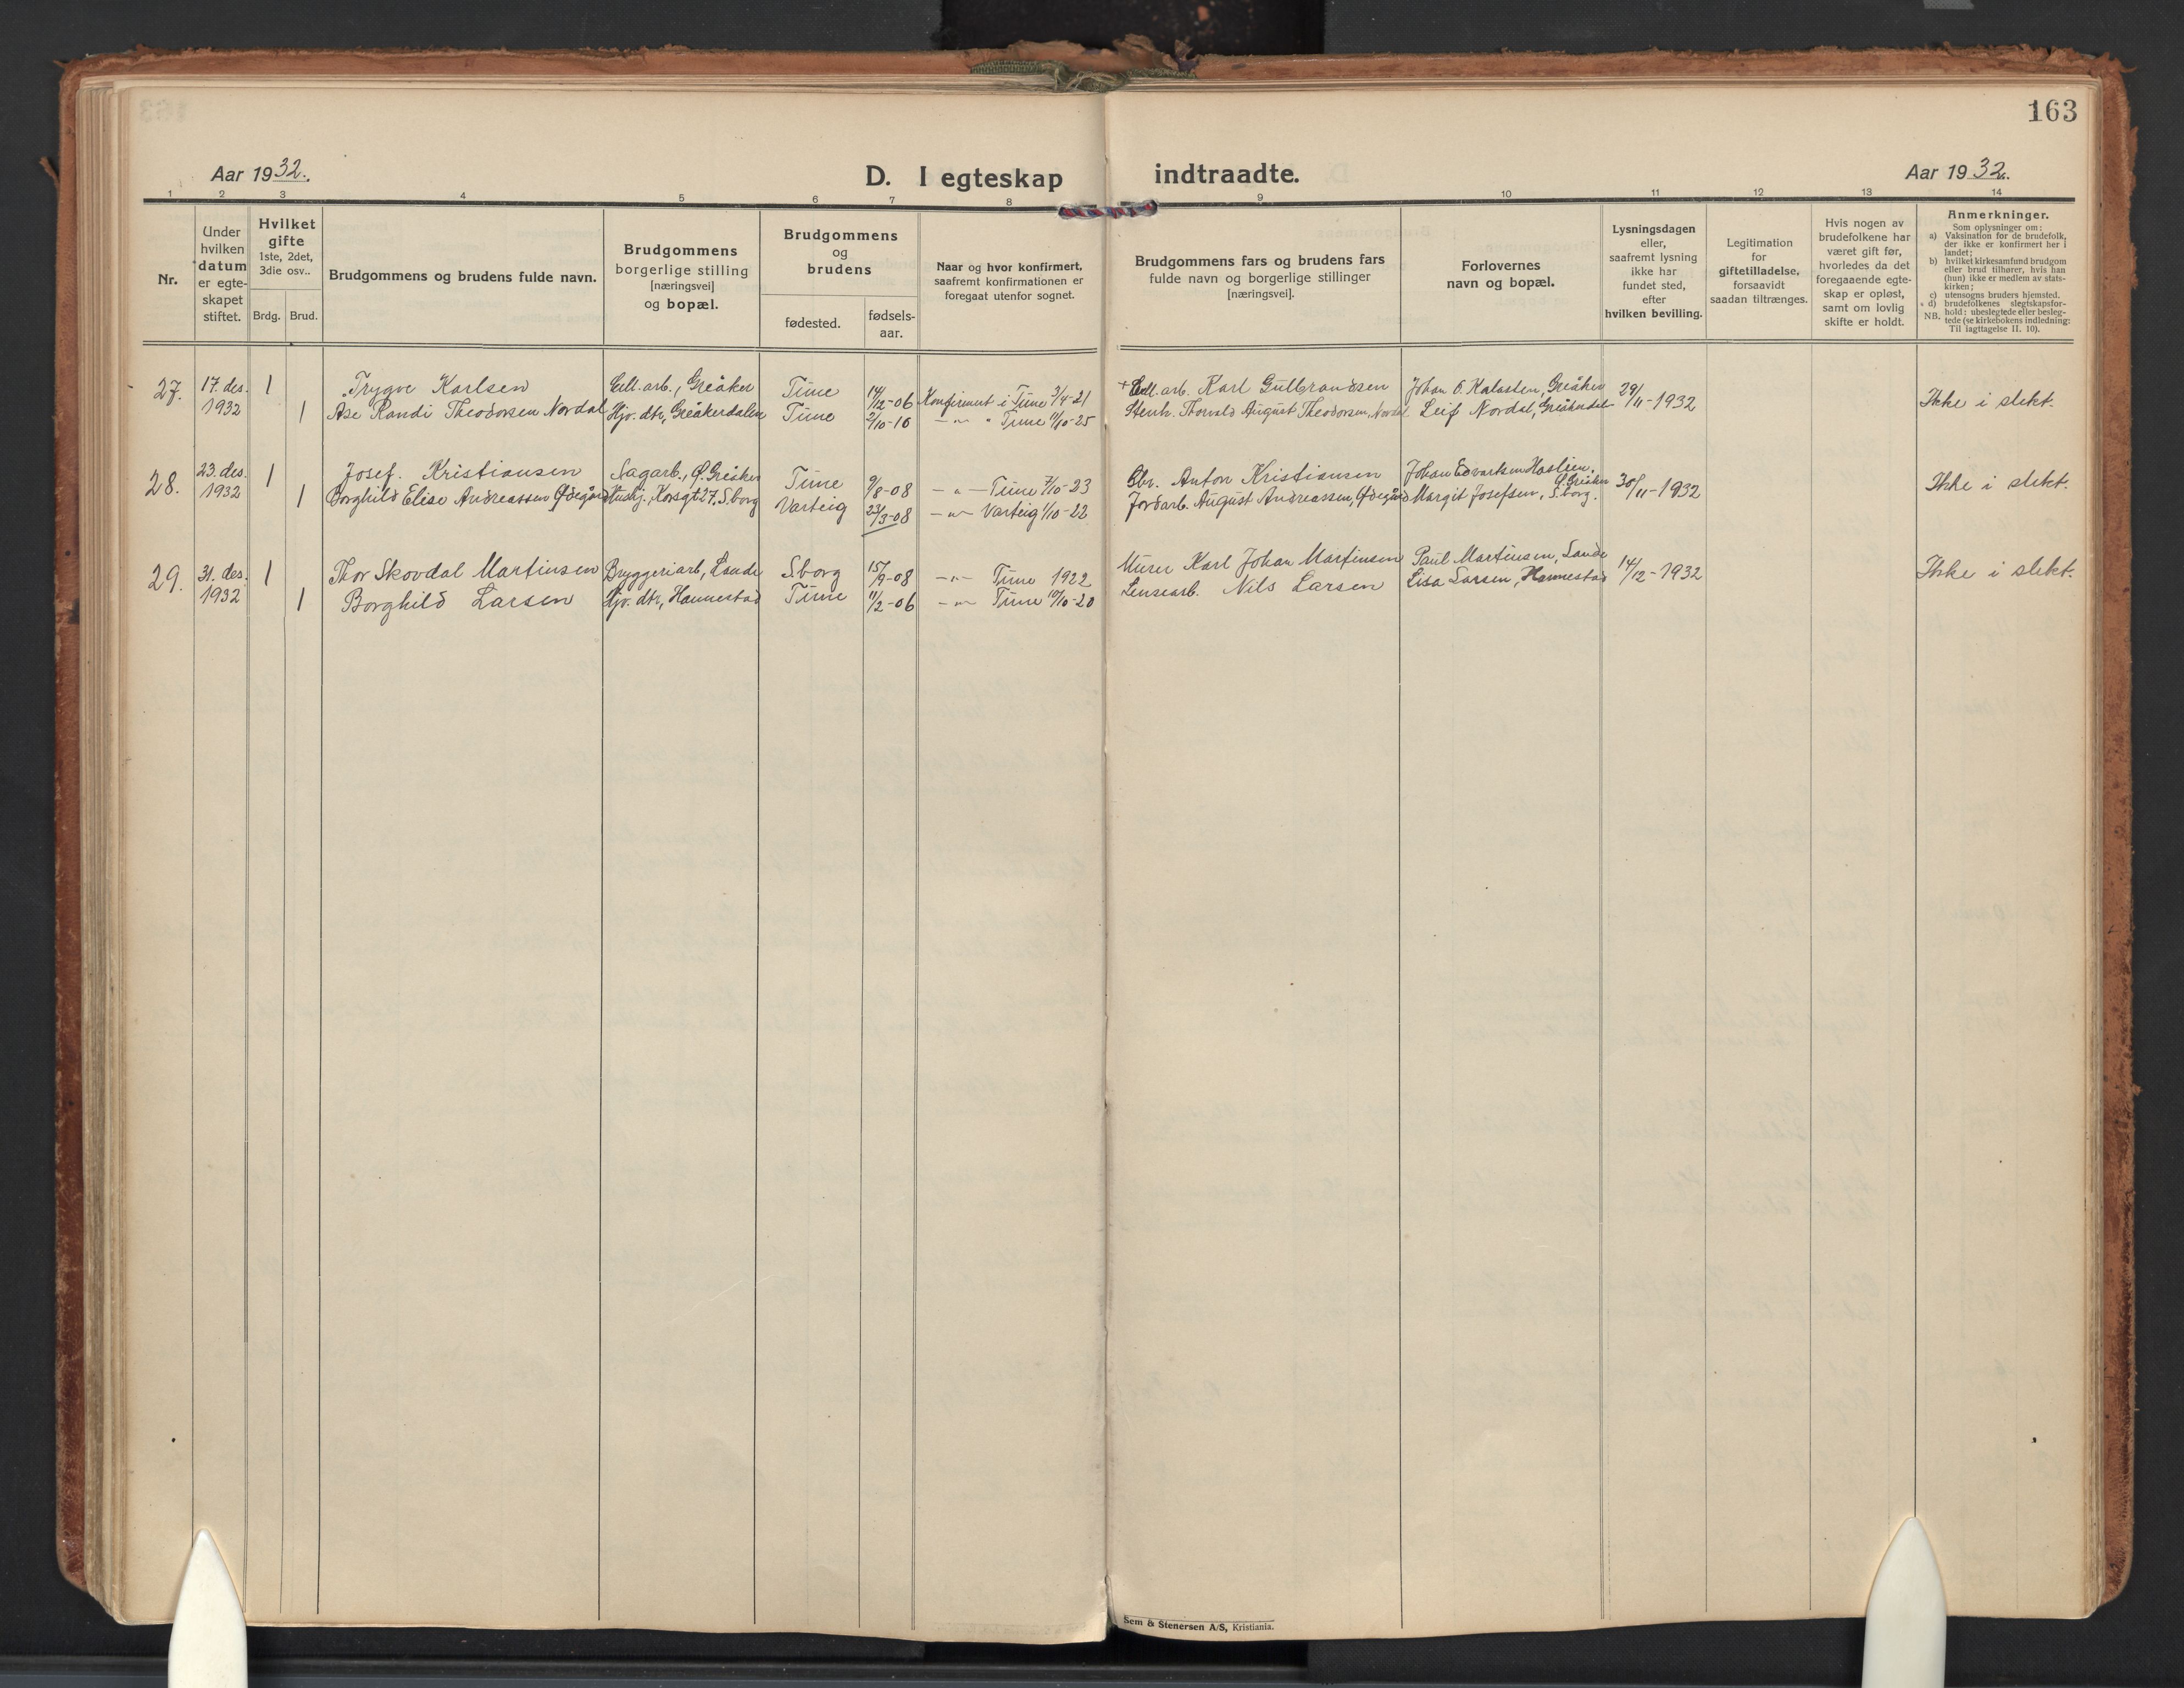 163
Aar 1932.
D. I egteskap indtraadte.
Aar 1932.
1 2 3 4 5 6 7 8 9 10 11 12 13 14
Nr.
Under
hvilken
datum
er egte-
skapet
stiftet.
Hvilket
gifte
1ste, 2det,
3die osv..
Brdg. Brud.
Brudgommens og brudens fulde navn.
Brudgommens
borgerlige stilling
[næringsvei]
og bopæl.
Brudgommens
og
brudens
fødested.
fødsels-
aar.
Naar og hvor konfirmert,
saafremt konfirmationen er
foregaat utenfor sognet.
Brudgommens fars og brudens fars
fulde navn og borgerlige stillinger
[næringsvei].
Forlovernes
navn og bopæl.
Lysningsdagen
eller,
saafremt lysning
ikke har
fundet sted,
efter
hvilken bevilling.
Legitimation
for
giftetilladelse,
forsaavidt
saadan tiltrænges.
Hvis nogen av
brudefolkene har
været gift før,
hvorledes da det
foregaaende egte-
skap er opløst,
samt om lovlig
skifte er holdt.
Anmerkninger.
Som oplysninger om:
a) Vaksination for de brudefolk,
der ikke er konfirmert her i
landet;
b) hvilket kirkesamfund brudgom
eller brud tilhører, hvis han
(hun) ikke er medlem av stats-
kirken;
c) utensogns bruders hjemsted.
d) brudefolkenes slegtskapsfor-
hold: ubeslegtede eller besleg-
NB. tede (se kirkebokens indledning:
Til iagttagelse II. 10).
27. 17. des. 1 Trygve Karlsen Cell. arb., Greåker Tune 14/12-06 Konfirmert i Tune 3/4-21 + Cell. arb. Karl Gulbrandsen Johan O. Kalasten, Greåker 29/11-1932 Ikke i slekt.
1932 1 Åse Randi Theodorsen Nordal Hjv. dtr, Greåkerdalen Tune 2/10-10 -"- " Tune 11/10-25 Stenh. Thorvald August Theodorsen, Nordal Leif Nordal, Greåkerdalen
28. 23. des. 1 Josef. Kristiansen Sagarb., Ø. Greåker Tune 9/8-08 -"- Tune 7/10-23 Obr. Anton Kristiansen Johan Edvartsen Haslien, Ø. Greåker 30/11-1932 Ikke i slekt.
1932 1 Borghild Elise Andreassen Ødegård Hushj., Korsgt 27, S.borg Varteig 23/3-08 -"- Varteig 1/10-22 Jordarb. August Andreassen, Ødegård Margit Josefsen, S.borg.
29. 31. des. 1 Thor Skovdal Martinsen Bryggeriarb, Lande S.borg 15/9-08 -"- Tune 1922 Murer Karl Johan Martinsen Paul Martinsen, Lande 14/12-1932 Ikke i slekt.
1932 1 Borghild Larsen Hjv. dtr, Hannestad Tune 11/2-06 -"- Tune 10/10-20 Lensearb. Nils Larsen Lisa Larsen, Hannestad
Sem & Stenersen A/S, Kristiania.